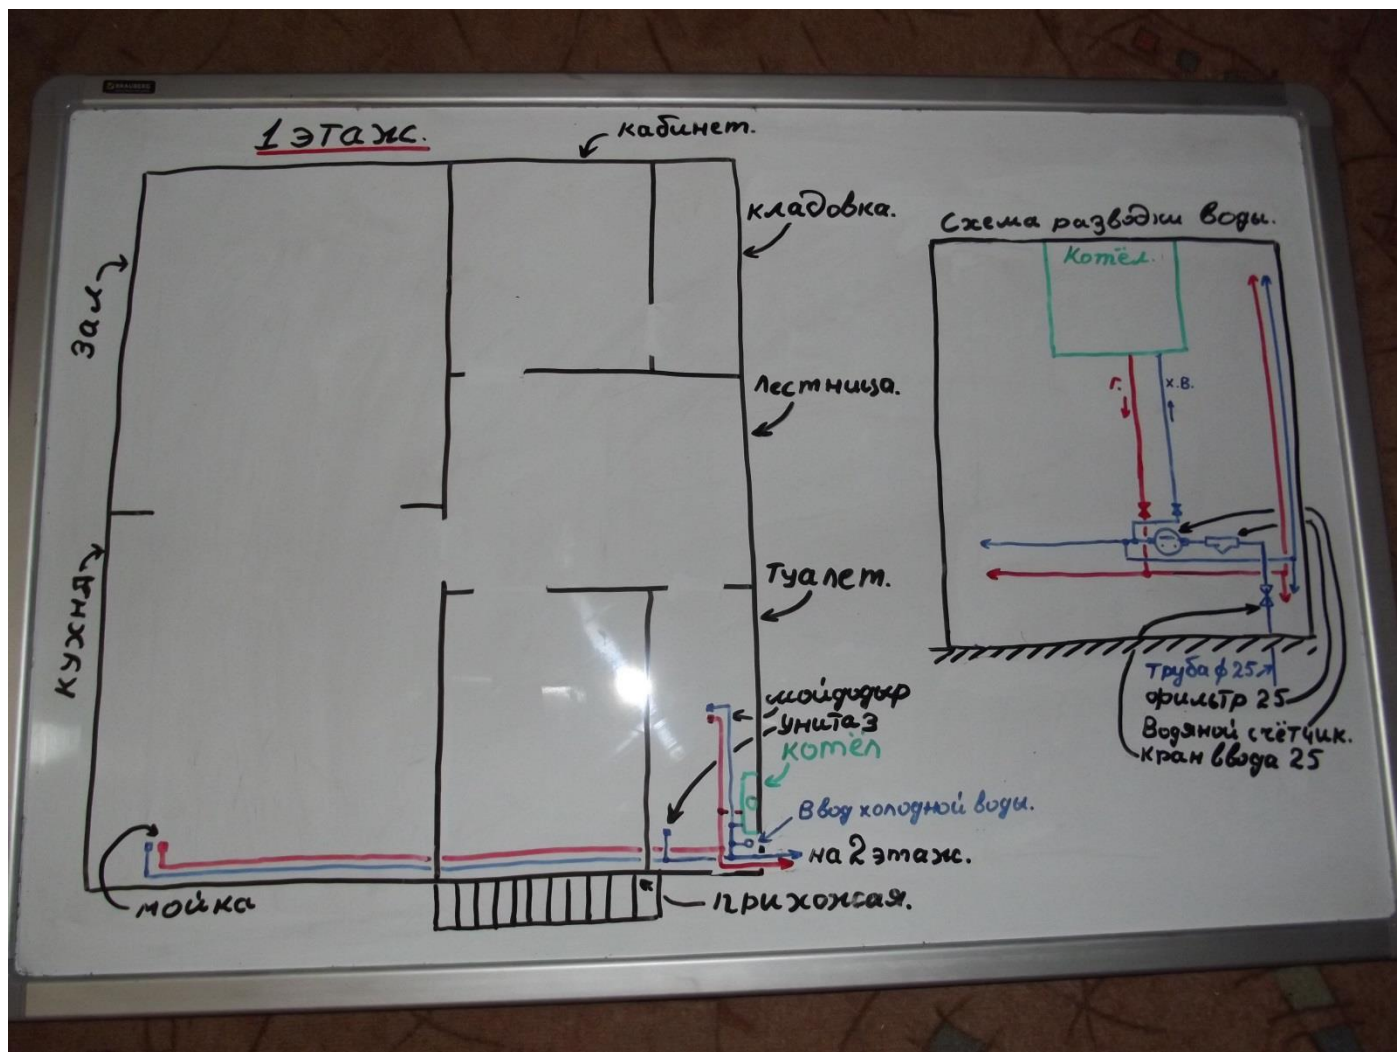 BRAUBERG
1 этаж.
кабинет.
кладовка.
Зал
Лестница.
Туалет.
кухня
мойдодыр
унитаз
котёл
Ввод холодной воды.
на 2 этаж.
мойка
прихожая.
Схема разводки воды.
Котёл.
г.
х.в.
труба ф 25
фильтр 25
Водяной счётчик.
кран ввода 25